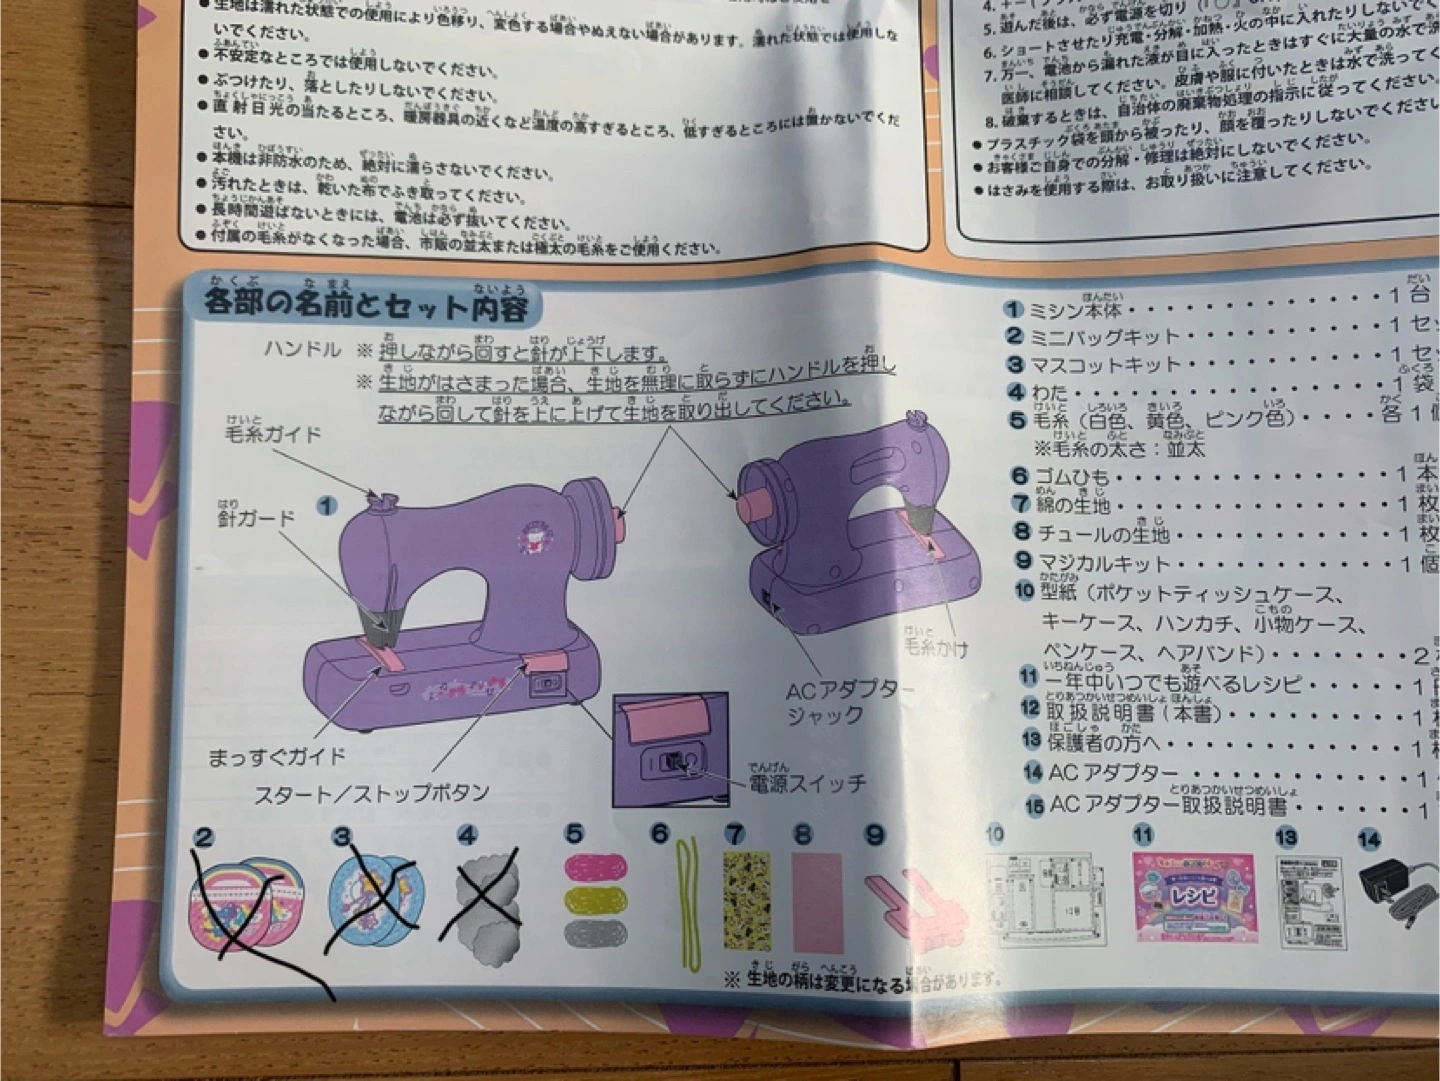 ● 生地は濡れた状態での使用により色移り、変色する場合やぬえない場合があります。濡れた状態では使用しな
いでください。
● 不安定なところでは使用しないでください。
● ぶつけたり、落としたりしないでください。
● 直射日光の当たるところ、暖房器具の近くなど温度の高すぎるところ、低すぎるところには置かないでくだ
さい。
● 本機は非防水のため、絶対に濡らさないでください。
● 汚れたときは、乾いた布でふき取ってください。
● 長時間遊ばないときには、電池は必ず抜いてください。
● 付属の毛糸がなくなった場合、市販の並太または極太の毛糸をご使用ください。
5. 遊んだ後は、必ず電源を切り
6. ショートさせたり充電・分解・加熱・火の中に入れたりしないで
7. 万一、電池から漏れた液が目に入ったときはすぐに大量の水で
医師に相談してください。皮膚や服に付いたときは水で洗って
8. 破棄するときは、自治体の廃棄物処理の指示に従ってください。
● プラスチック袋を頭から被ったり、顔を覆ったりしないでください
● お客様ご自身での分解・修理は絶対にしないでください。
● はさみを使用する際は、お取り扱いに注意してください。
各部の名前とセット内容
ハンドル ※ 押しながら回すと針が上下します。
※ 生地がはさまった場合、生地を無理に取らずにハンドルを押し
ながら回して針を上に上げて生地を取り出してください。
毛糸ガイド
針ガード
1
毛糸かけ
ACアダプター
ジャック
まっすぐガイド
スタート/ストップボタン
電源スイッチ
1 ミシン本体・・・・・・・・・・・・1台
2 ミニバッグキット・・・・・・・・・1セッ
3 マスコットキット・・・・・・・・・1セ
4 わた・・・・・・・・・・・・・・・1袋
5 毛糸（白色、黄色、ピンク色）・・・・各1
※毛糸の太さ：並太
6 ゴムひも・・・・・・・・・・・・・1本
7 綿の生地・・・・・・・・・・・・・1枚
8 チュールの生地・・・・・・・・・・1枚
9 マジカルキット・・・・・・・・・・1個
10 型紙（ポケットティッシュケース、
キーケース、ハンカチ、小物ケース、
ペンケース、ヘアバンド）・・・・・・・2
11 一年中いつでも遊べるレシピ・・・・・1
12 取扱説明書（本書）・・・・・・・・・1
13 保護者の方へ・・・・・・・・・・・1
14 ACアダプター・・・・・・・・・・・1
15 ACアダプター取扱説明書・・・・・・1
2 3 4 5 6 7 8 9 10 11 13 14
レシピ
※ 生地の柄は変更になる場合があります。